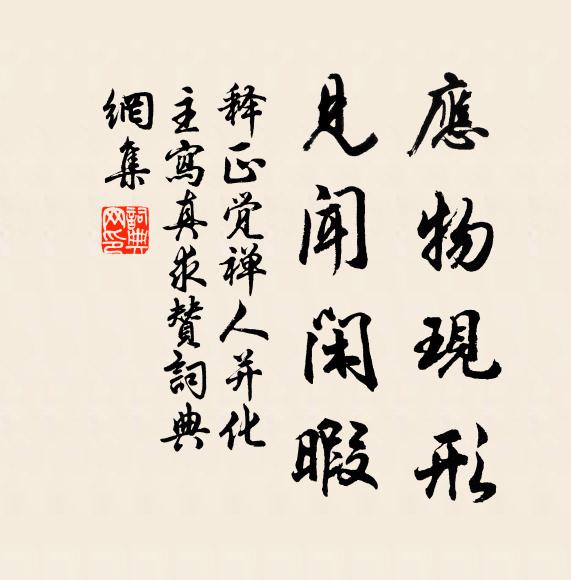 應物現形
見聞閑暇
释正觉禅人并化
主寫真求贊詞典
網集
詞典網印